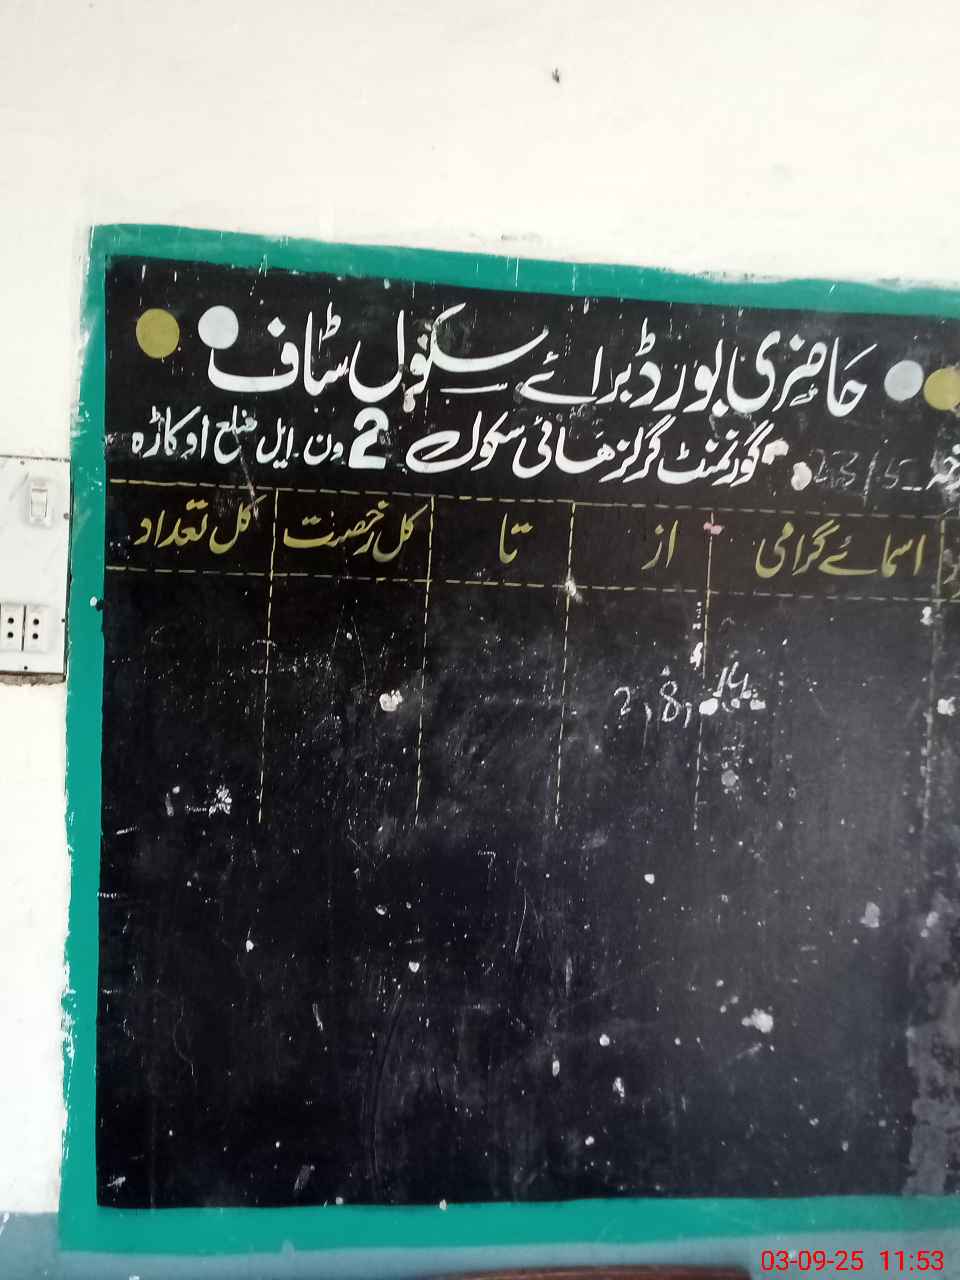 حاضری بورڈ برائے سکول سٹاف
گورنمنٹ گرلز ھائی سکول 2 ون ایل ضلع اوکاڑہ
23/5
اسمائے گرامی از تا کل رخصت کل تعداد
2,8,
03-09-25 11:53